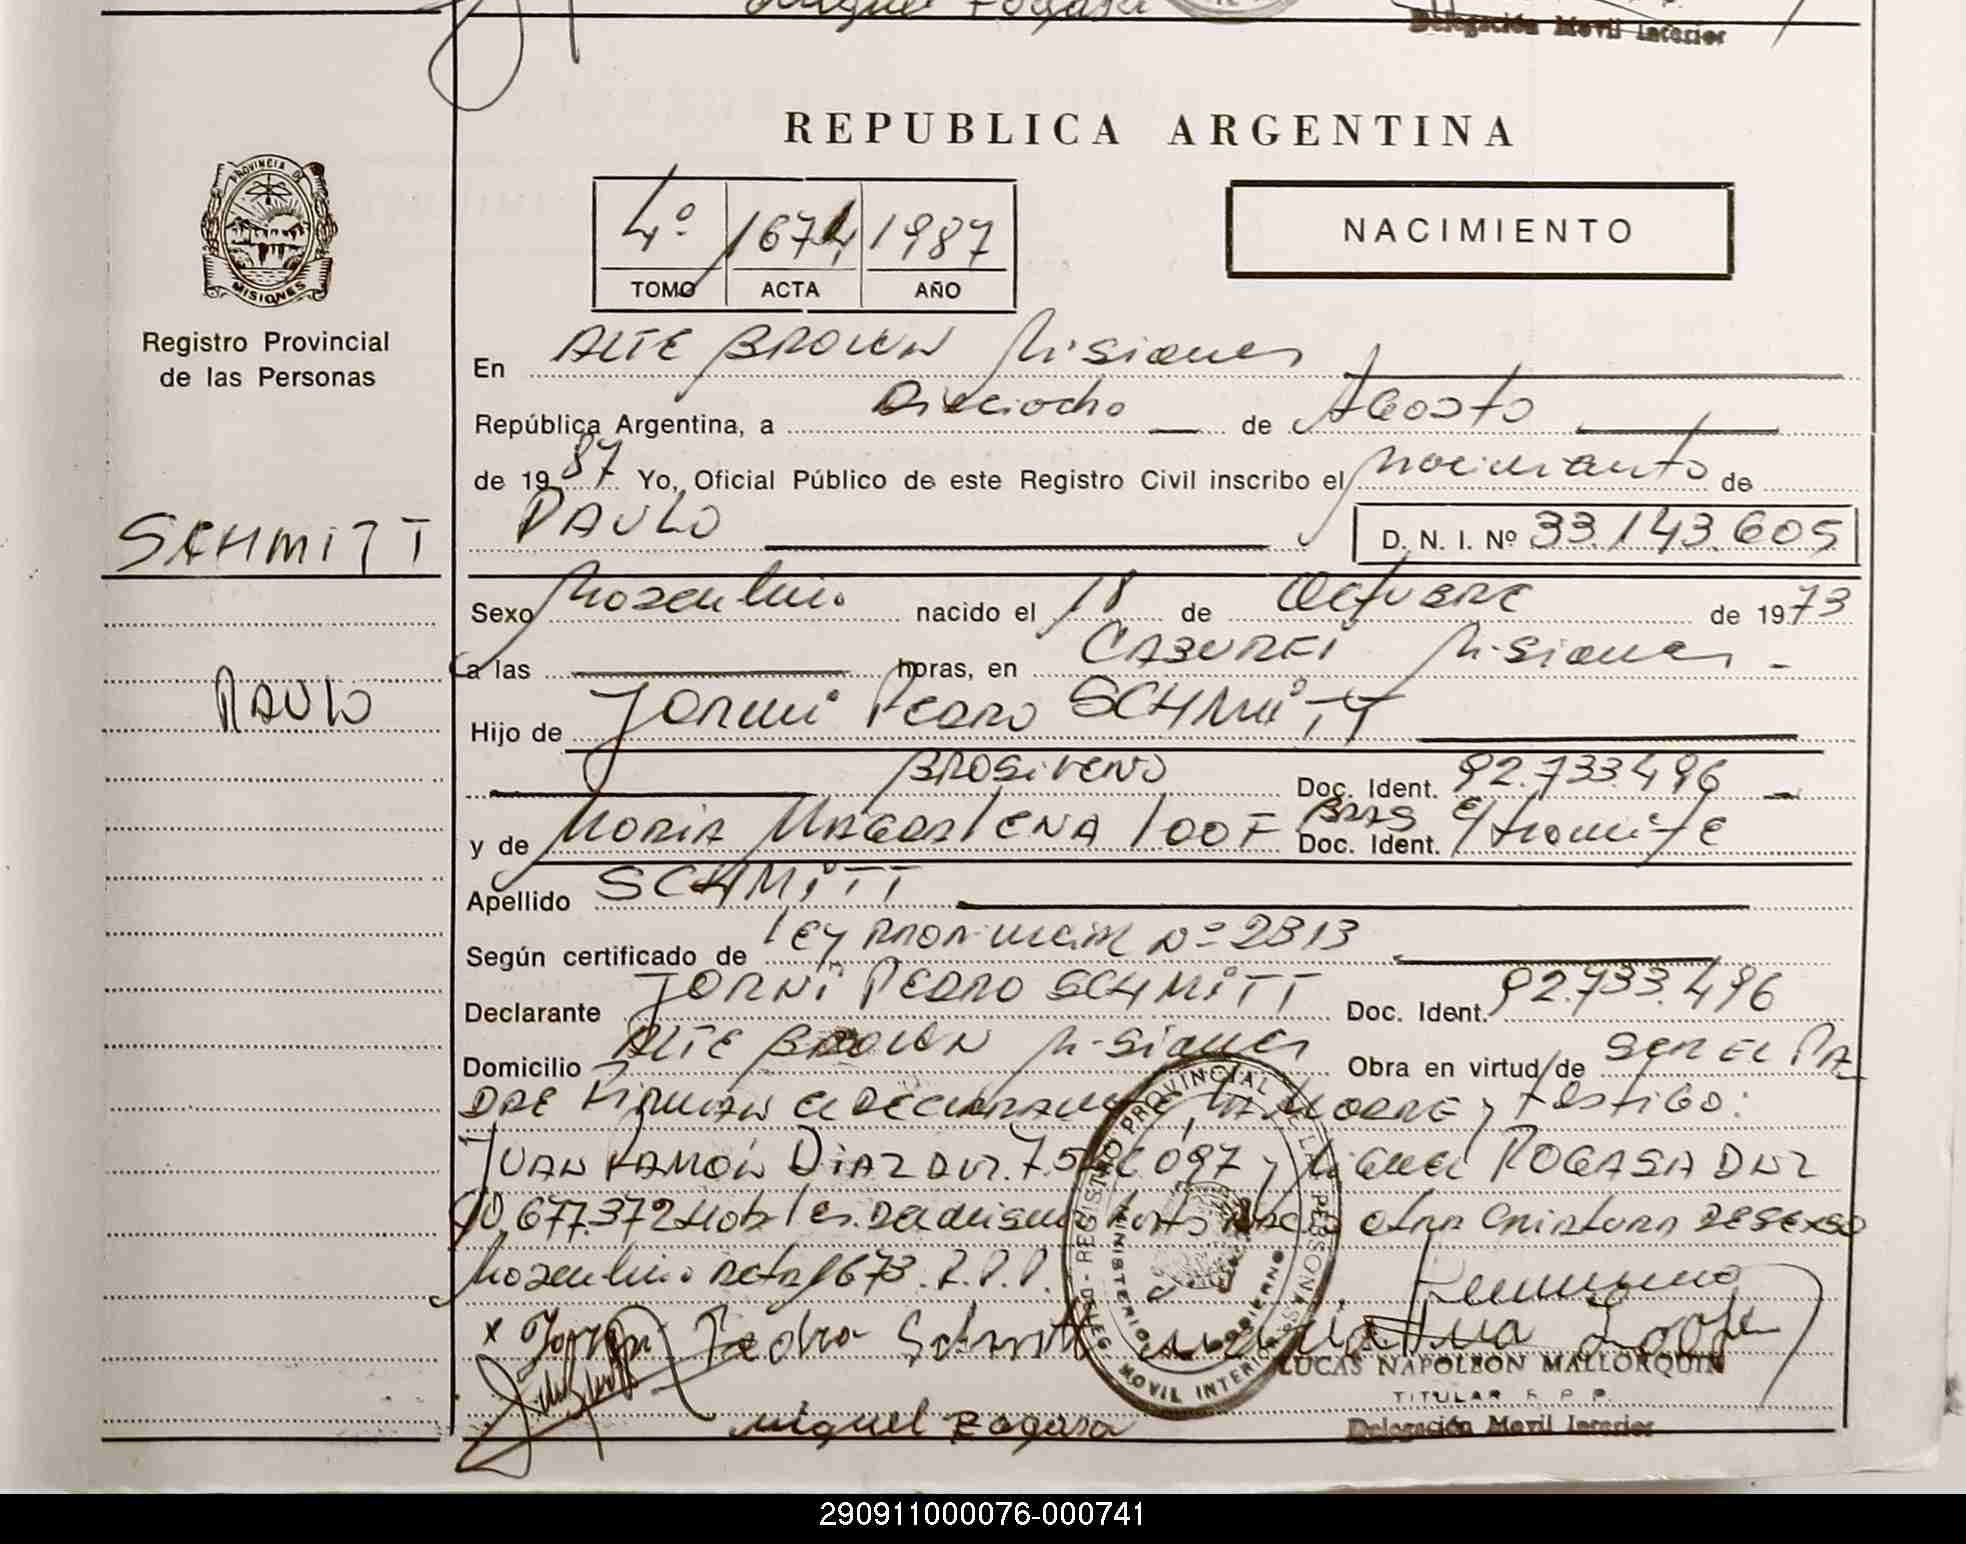 Miguel Rogasa
Delegación Movil Interior
REPUBLICA ARGENTINA
PROVINCIA DE
MISIONES
Registro Provincial
de las Personas
4º 1674 1987
TOMO ACTA AÑO
NACIMIENTO
En ALTE BROWN Misiones
República Argentina, a Dieciocho de Agosto
de 1987 Yo, Oficial Público de este Registro Civil inscribo el nacimiento de
SCHMITT
PAULO D. N. I. Nº 33.143.605
Sexo Masculino nacido el 18 de Octubre de 1973
a las horas, en CABUREI Misiones
PAULO
Hijo de JORNI PEDRO SCHMITT
BRASILENO Doc. Ident. 92.733.496
y de MARIA MAGDALENA LOOF BRAS Doc. Ident. E/tramite
Apellido SCHMITT
Según certificado de LEY PROVINCIAL Nº 2313
Declarante JORNI PEDRO SCHMITT Doc. Ident. 92.733.496
Domicilio ALTE BROWN Misiones Obra en virtud de SER EL PA
DRE FIRMAN el DECLARANTE LA MADRE y testigo:
JUAN RAMÓN DIAZ DNI. 7.5 097 y Miguel ROGASA DNI
10.677.372 Habiles. Del mismo Parto NACIO otra Criatura DE SEXO
Masculino Acta 1673.
x Jorni Pedro Schmitt Loof
REGISTRO PROVINCIAL DE LAS PERSONAS
DELEG MOVIL INTERIOR
MINISTERIO GOBIERNO
LUCAS NAPOLEON MALLORQUIN
TITULAR R. P. P.
Miguel Rogasa
Delegación Movil Interior
290911000076-000741